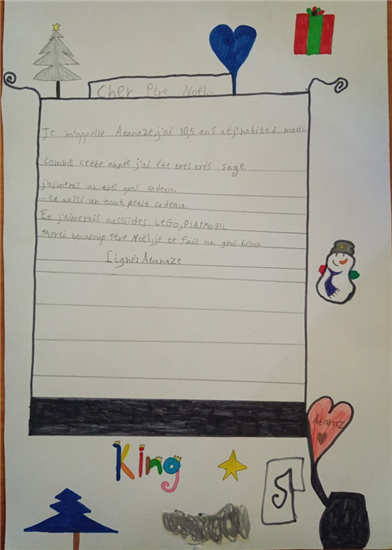 Cher Père Noël...
Je m'appelle Atanaze j'ai 10,5 ans et j'habite à
Comme cette année j'ai été très très sage
j'aimerais un très gros cadeau
...et aussi un tout petit cadeau
Et j'aimerais aussi des LEGO, PLAYMOBIL
Merci beaucoup Père Noël, je te fais un gros bisou
Signé: Atanaze
Atanaz
King